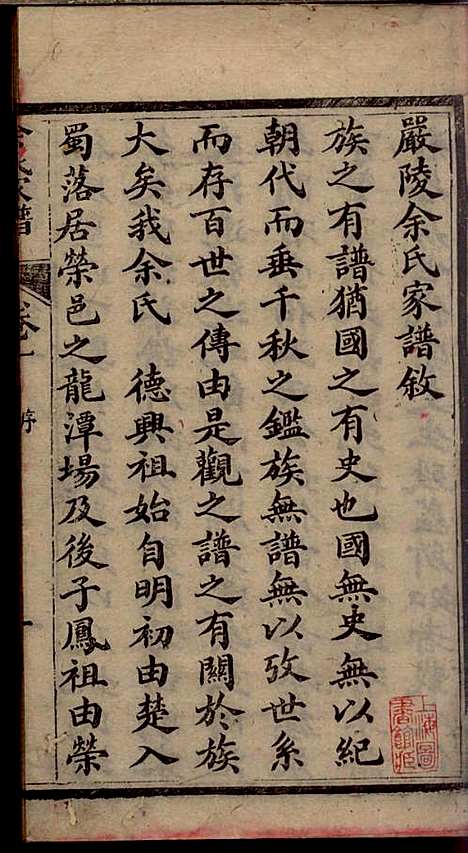 嚴陵余氏家譜敘
族之有譜猶國之有史也國無史無以紀
朝代而垂千秋之鑑族無譜無以攷世系
而存百世之傳由是觀之譜之有關於族
大矣我余氏　德興祖始自明初由楚入
蜀落居榮邑之龍潭場及後子鳳祖由榮
余氏家譜
卷一
序
一
上海圖
書館藏